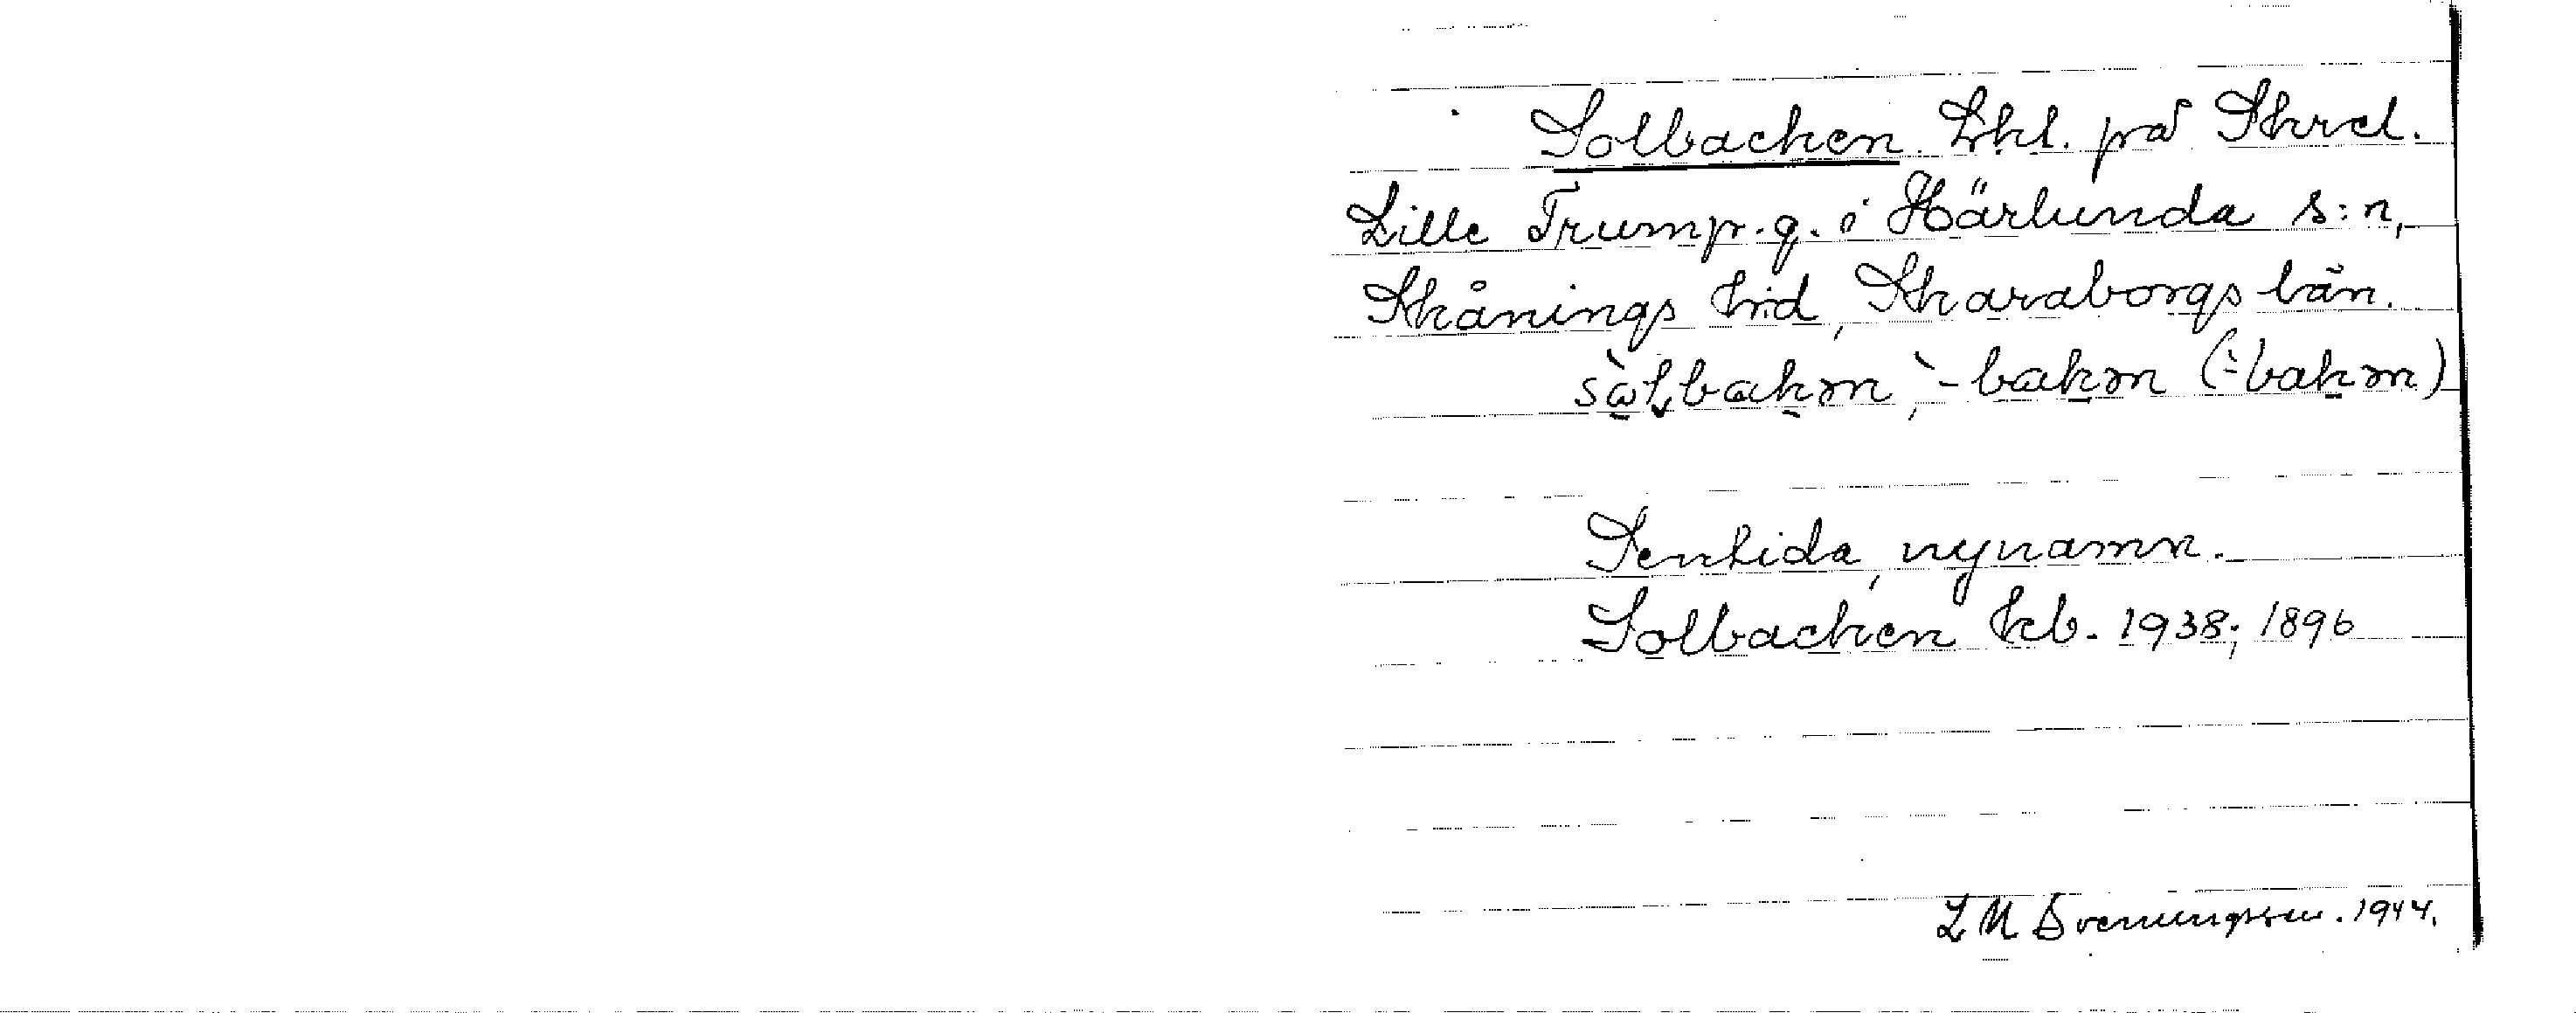 Solbacken. Lhl. på Skrcl.
Lille Trump.g. i Härlunda s:n,
Skånings hd, Skaraborgs län.
sò̱lbakən, `-bakən (`-bakən)
Sentida, nynamn.
Solbacken kb. 1938; 1896
L M Svenungsson. 1944.